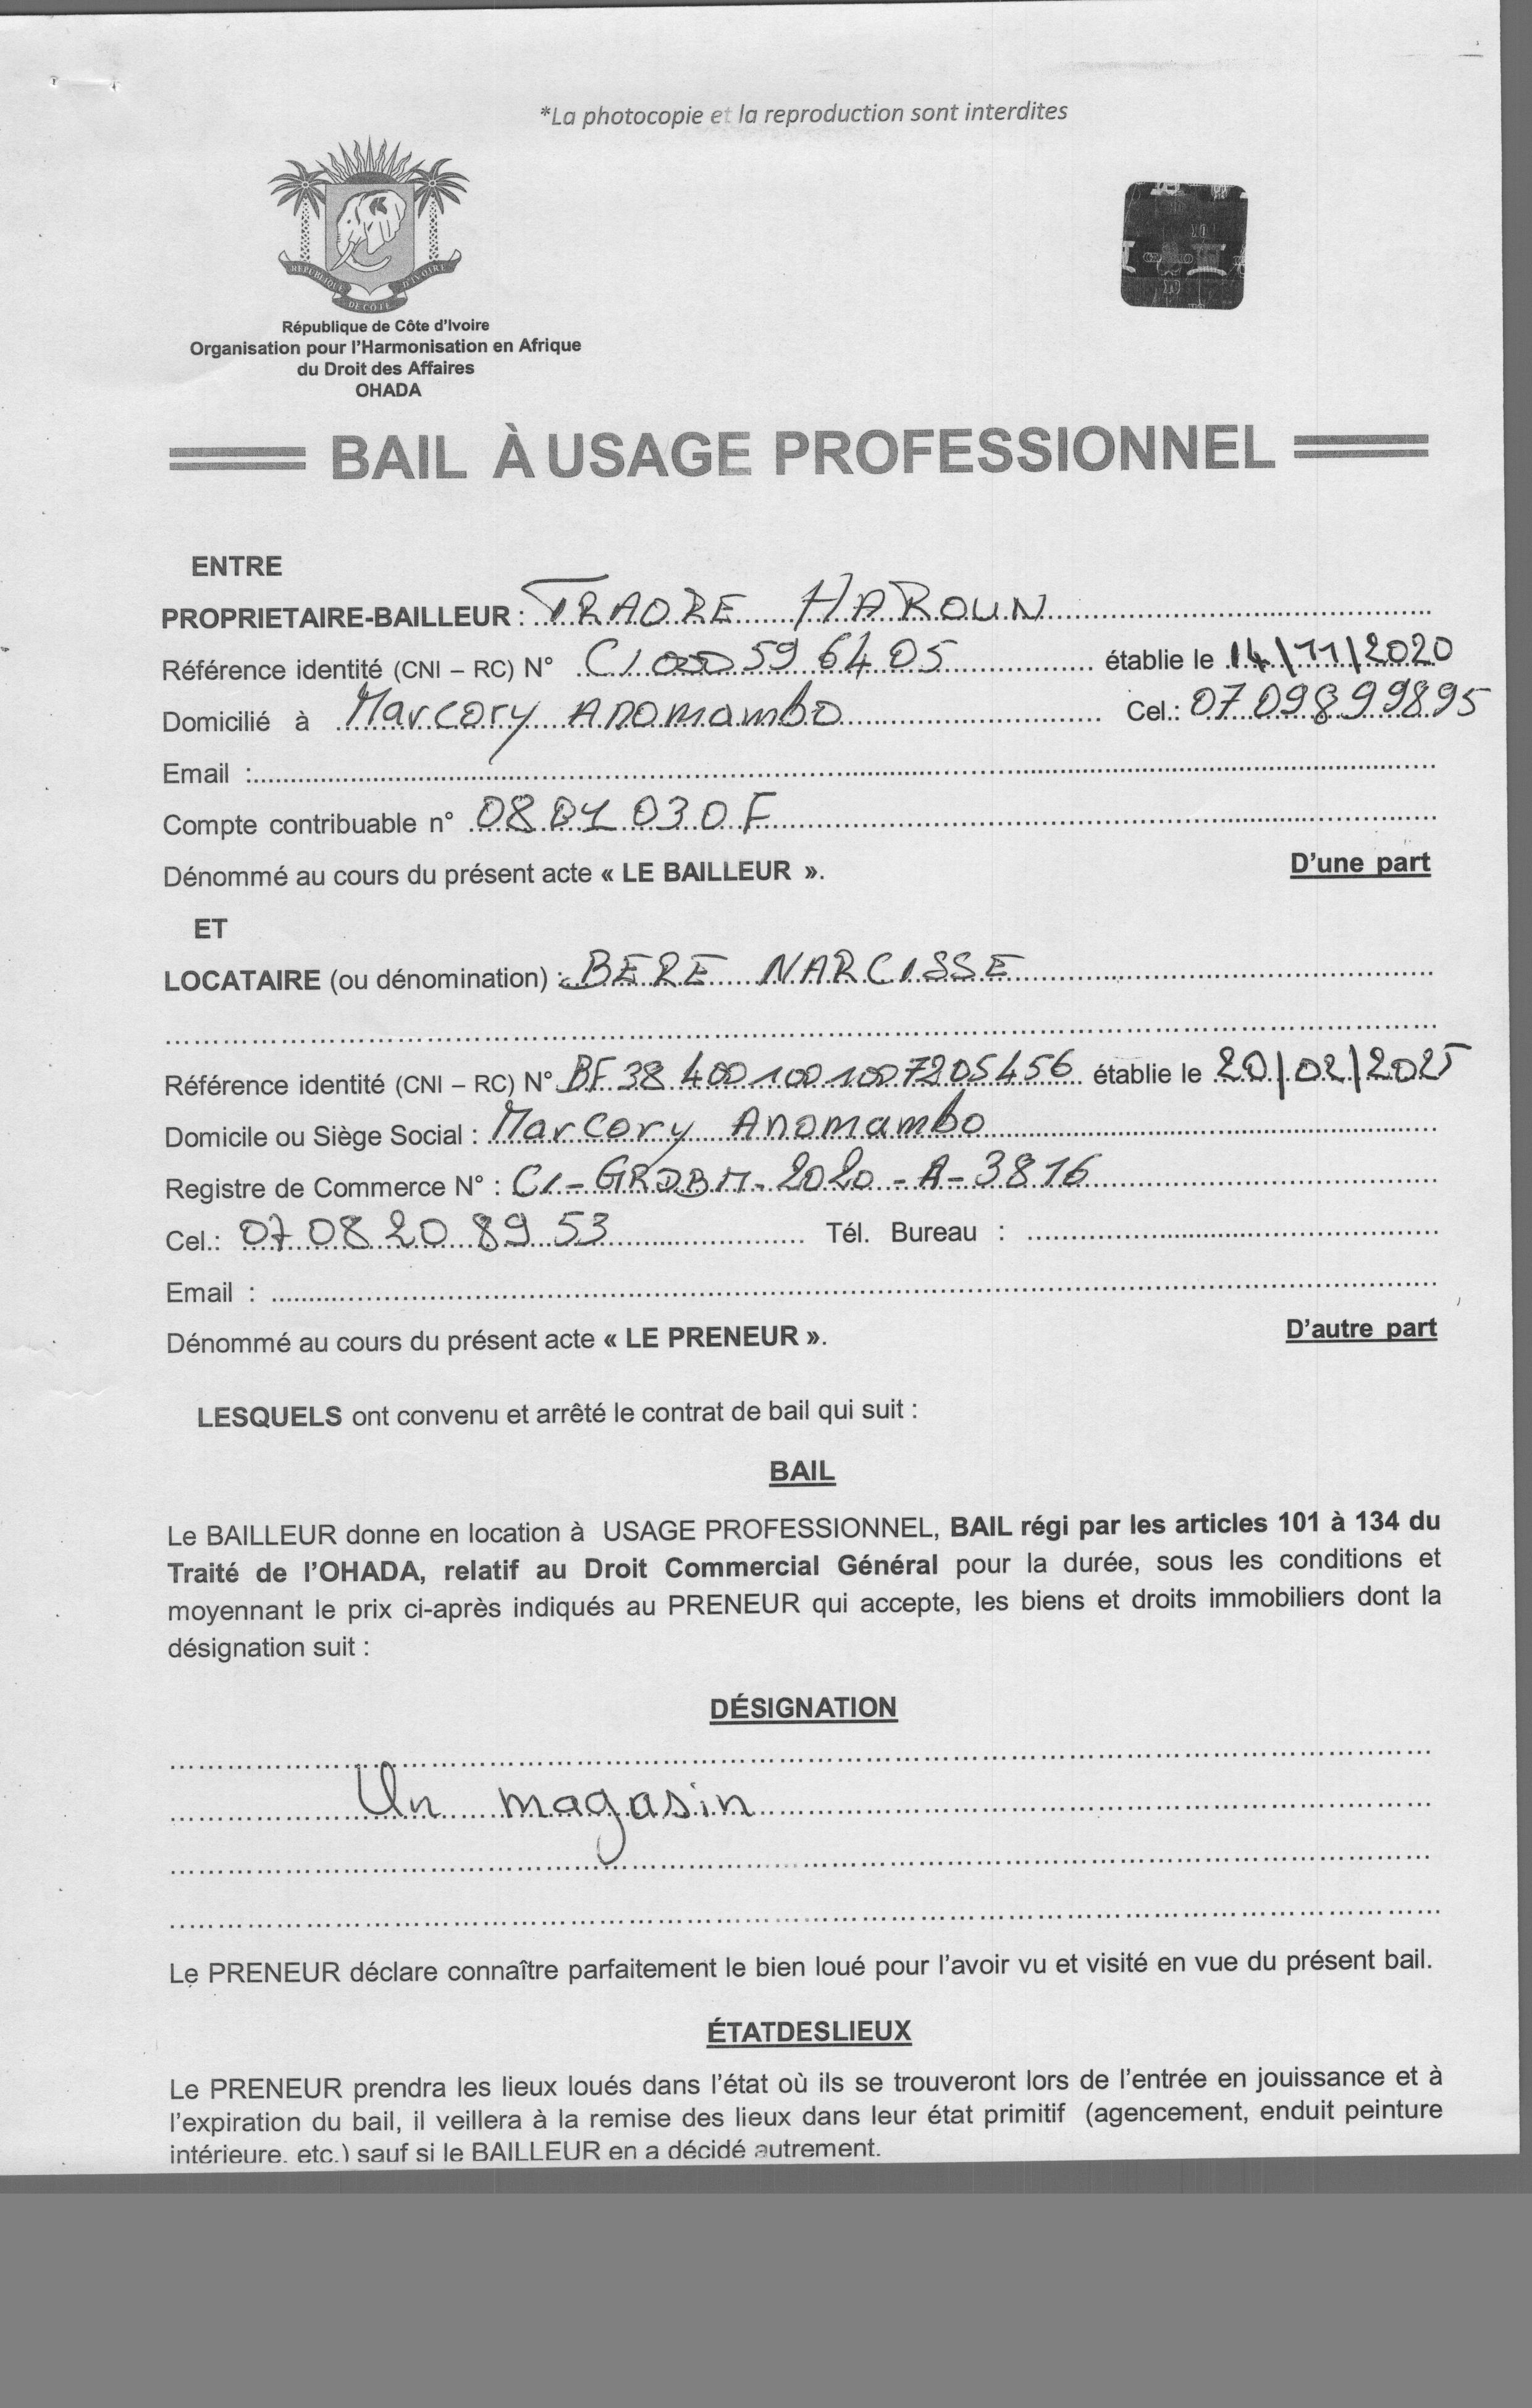 *La photocopie et la reproduction sont interdites
REPUBLIQUE DE CÔTE D'IVOIRE
République de Côte d'Ivoire
Organisation pour l'Harmonisation en Afrique
du Droit des Affaires
OHADA
BAIL À USAGE PROFESSIONNEL
ENTRE
PROPRIETAIRE-BAILLEUR : TRAORE HAROUN
Référence identité (CNI – RC) N° CI000596405 établie le 14/11/2020
Domicilié à Marcory Anomambo Cel.: 0709899895
Email :
Compte contribuable n° 0801030F
Dénommé au cours du présent acte « LE BAILLEUR ». D'une part
ET
LOCATAIRE (ou dénomination) : BERE NARCISSE
Référence identité (CNI – RC) N° BF 38 4001001007205456 établie le 20/02/2025
Domicile ou Siège Social : Marcory Anomambo
Registre de Commerce N° : CI-GRDBM-2020-A-3816
Cel.: 07 08 20 89 53 Tél. Bureau :
Email :
Dénommé au cours du présent acte « LE PRENEUR ». D'autre part
LESQUELS ont convenu et arrêté le contrat de bail qui suit :
BAIL
Le BAILLEUR donne en location à USAGE PROFESSIONNEL, BAIL régi par les articles 101 à 134 du
Traité de l'OHADA, relatif au Droit Commercial Général pour la durée, sous les conditions et
moyennant le prix ci-après indiqués au PRENEUR qui accepte, les biens et droits immobiliers dont la
désignation suit :
DÉSIGNATION
Un magasin
Le PRENEUR déclare connaître parfaitement le bien loué pour l'avoir vu et visité en vue du présent bail.
ÉTATDESLIEUX
Le PRENEUR prendra les lieux loués dans l'état où ils se trouveront lors de l'entrée en jouissance et à
l'expiration du bail, il veillera à la remise des lieux dans leur état primitif (agencement, enduit peinture
intérieure, etc.) sauf si le BAILLEUR en a décidé autrement.